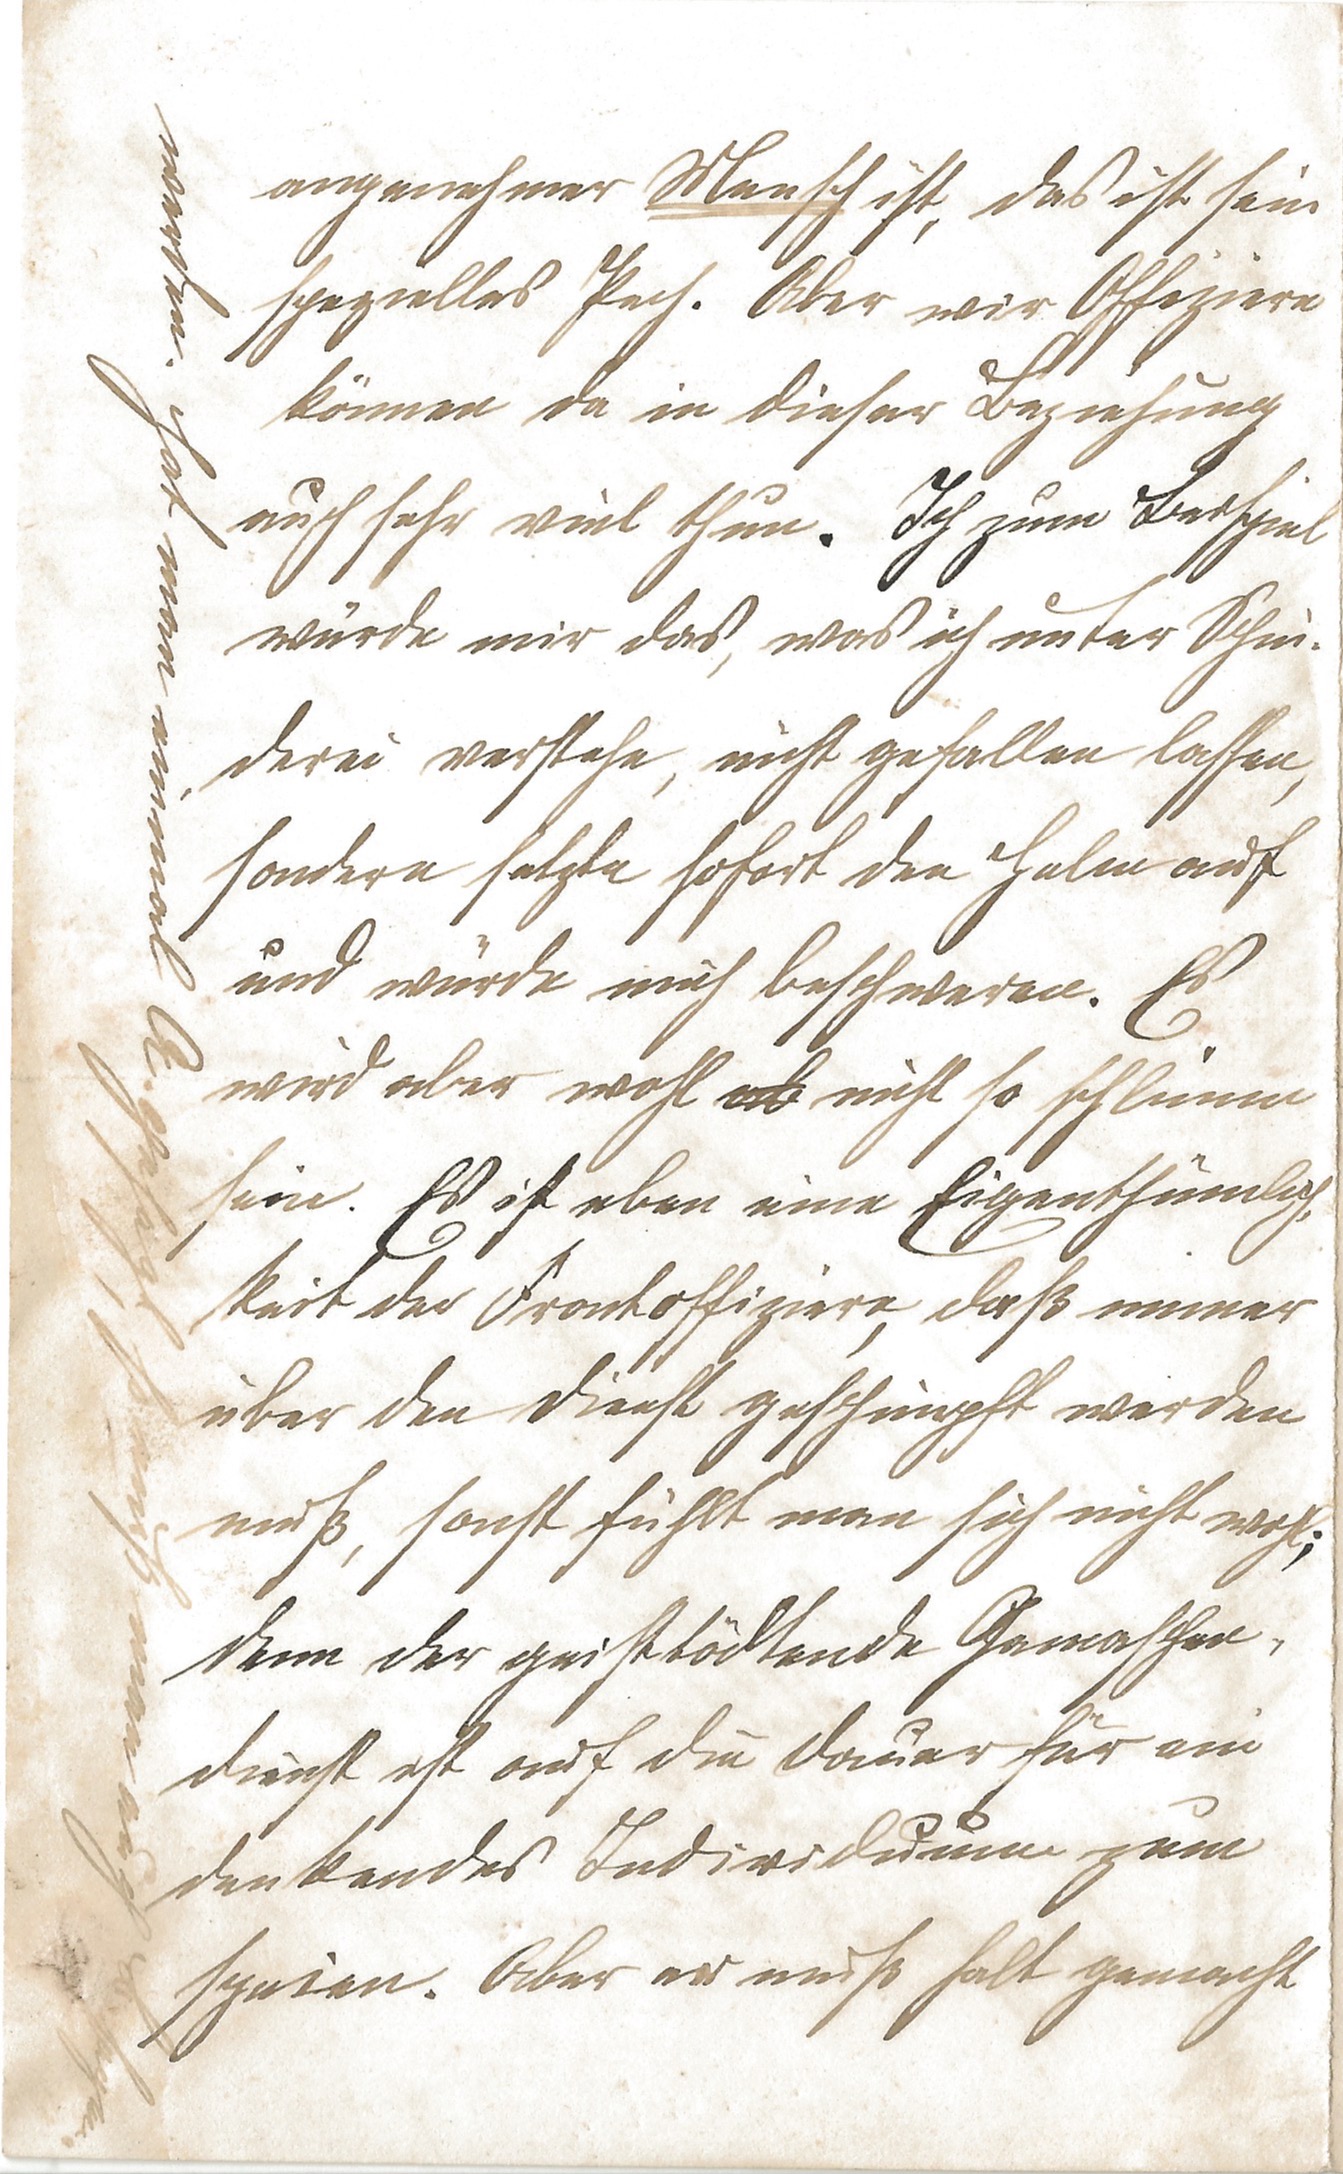 angenehmer Mensch ist, das ist sein
spezielles Pech. Aber wir Offiziere
können da in dieser Beziehung
auch sehr viel thun. Ich zum Beispiel
würde mir das, was ich unter Schin-
derei verstehe, nicht gefallen lassen,
sondern setzte sofort den Helm auf
und würde mich beschweren. Es
wird aber wohl nicht so schlimm
sein. Es ist eben eine Eigenthümlich-
keit der Frontoffiziere, daß immer
über den Dienst geschimpft werden
muß, sonst fühlt man sich nicht wohl;
denn der geisttödtende Gamaschen-
dienst ist auf die Dauer für ein
denkendes Individuum zum
speien. Aber er muß halt gemacht
werden. Hat man einmal A. gesagt, so muß man auch B. sagen.